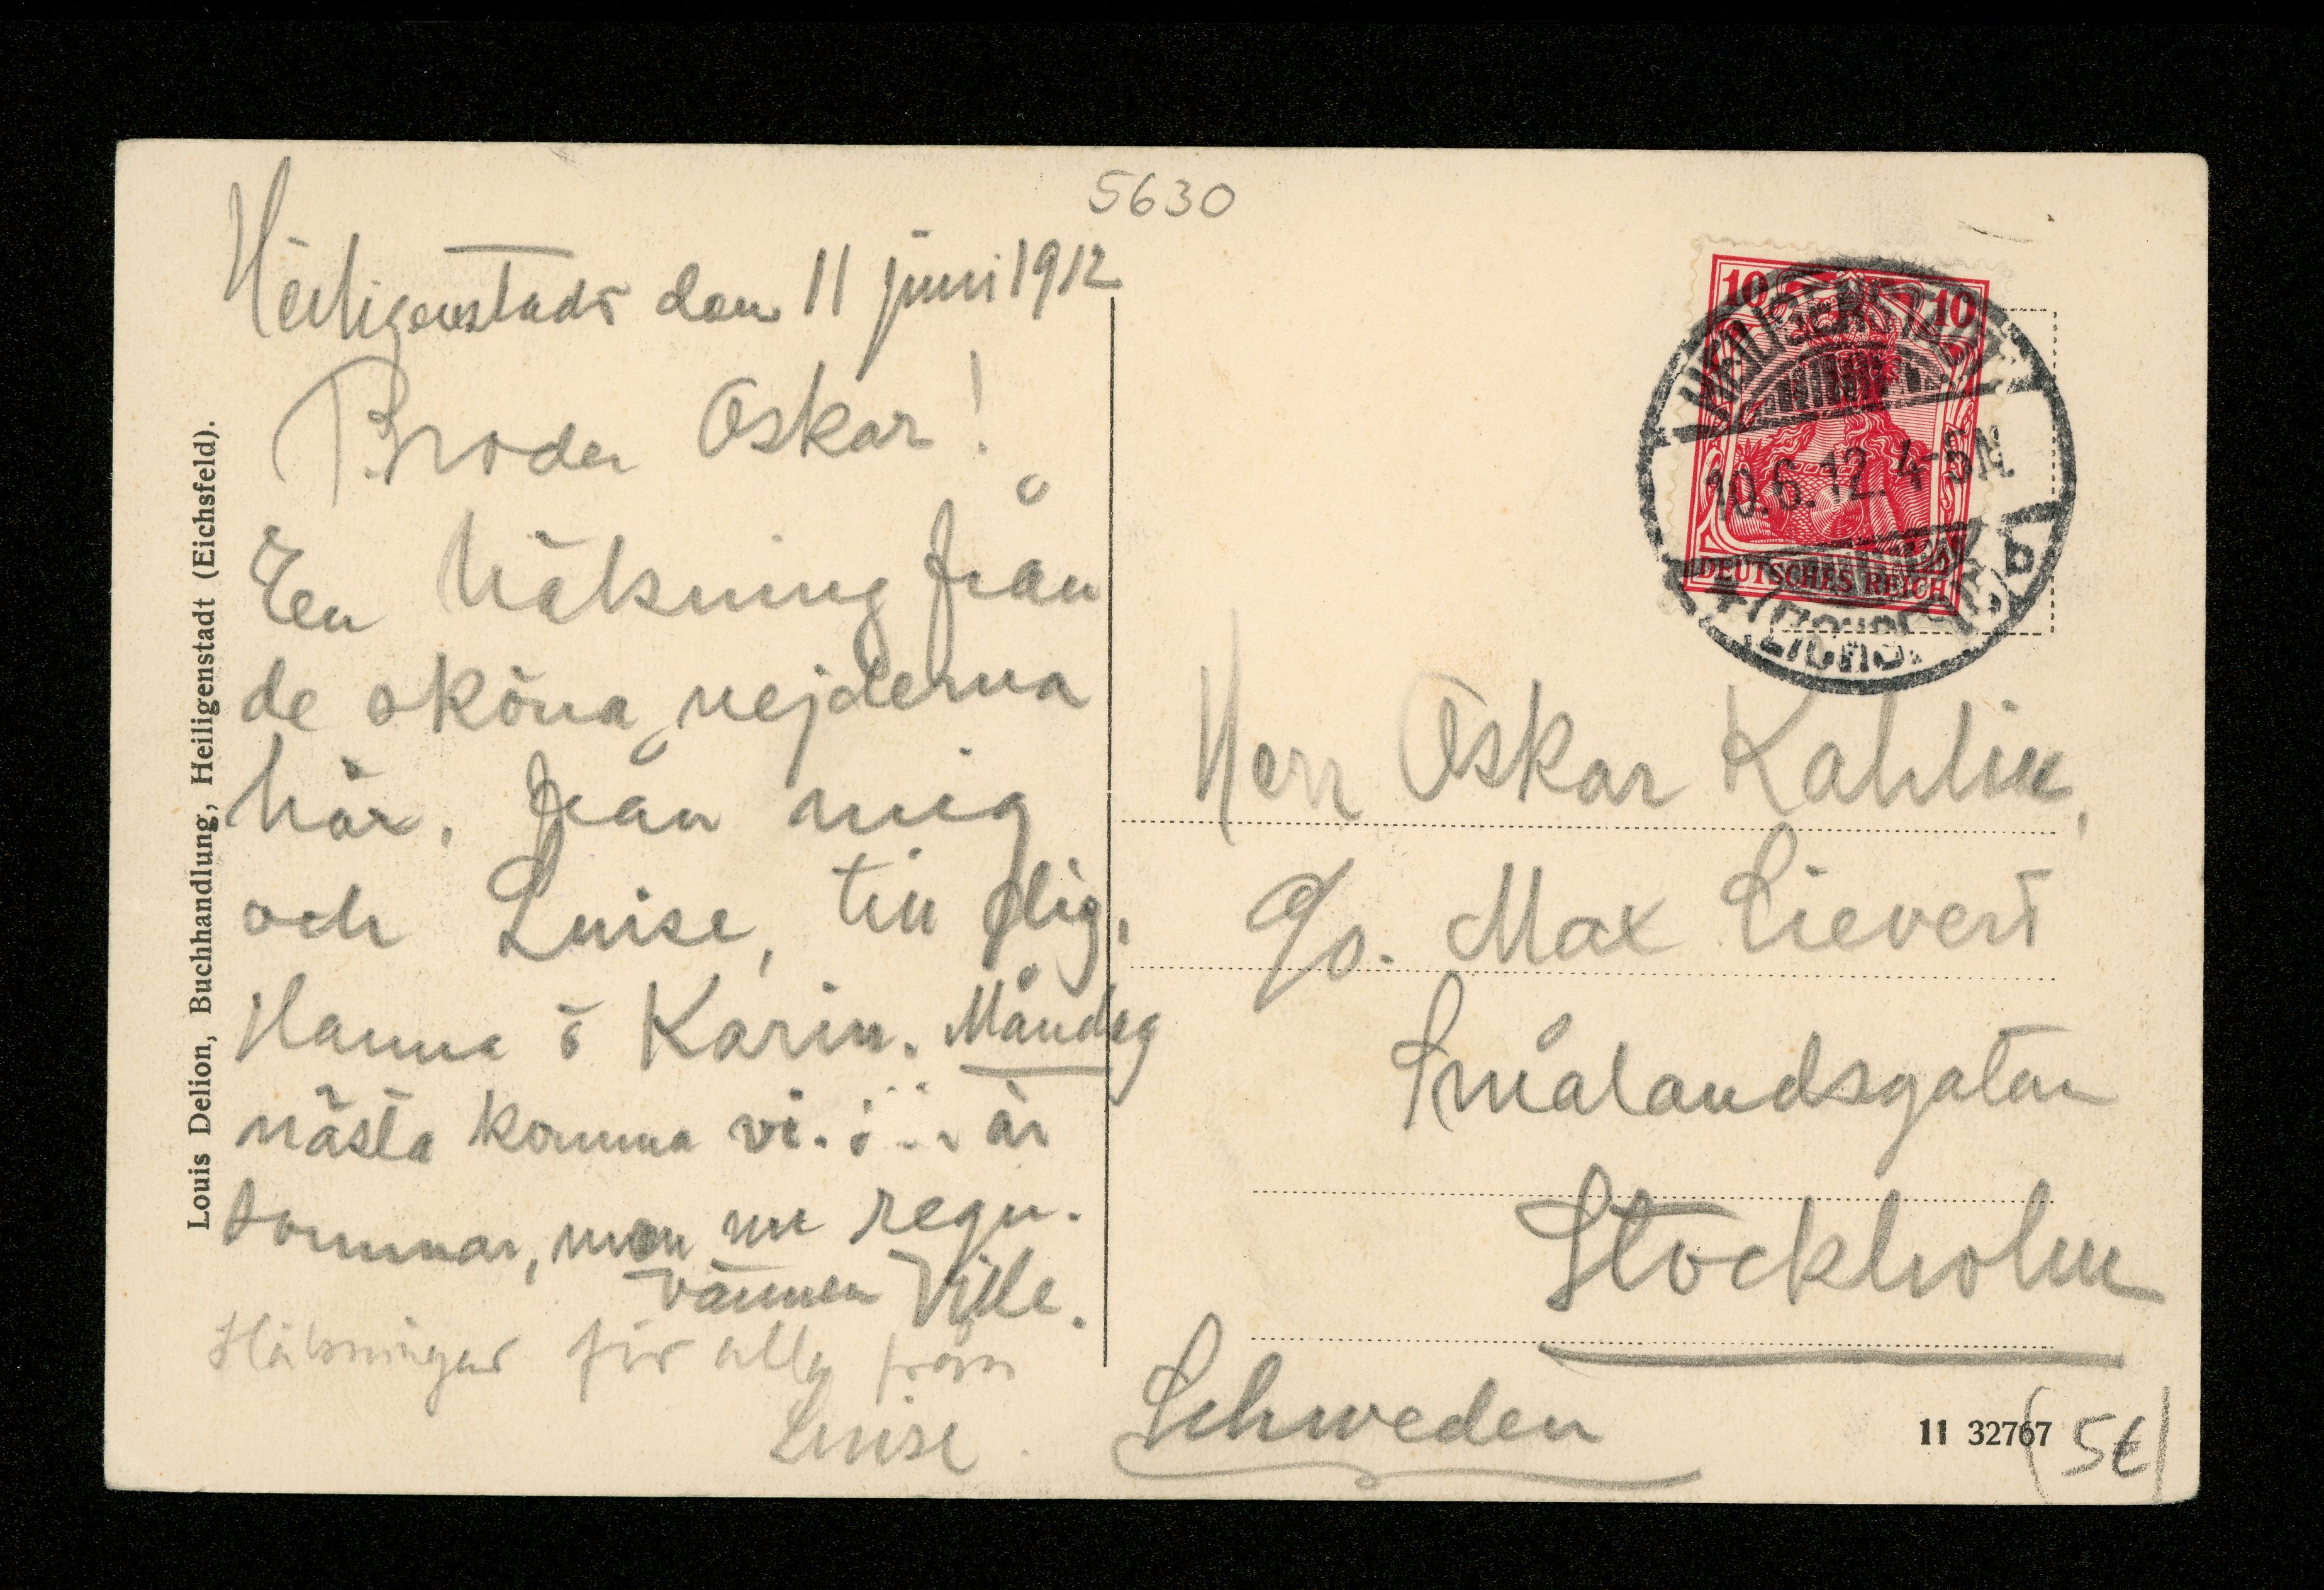 5630
Heiligenstadt den 11 juni 1912
Broder Oskar!
En hälsning från
de sköna nejderna
här. Från mig
och Luise, till dig,
Hanna o Karin. Måndag
nästa komma vi. är
sommar, men nu regn.
vännen Ville.
Hälsningar för alla från
Luise.
Louis Delion, Buchhandlung, Heiligenstadt (Eichsfeld).
10 10
DEUTSCHES REICH
HEILIGENSTADT
10.6.12. 4-5N.
b
Herr Oskar Kahlin,
c/o. Max Sievert
Smålandsgatan
Stockholm
Schweden
11 32767
(5€)